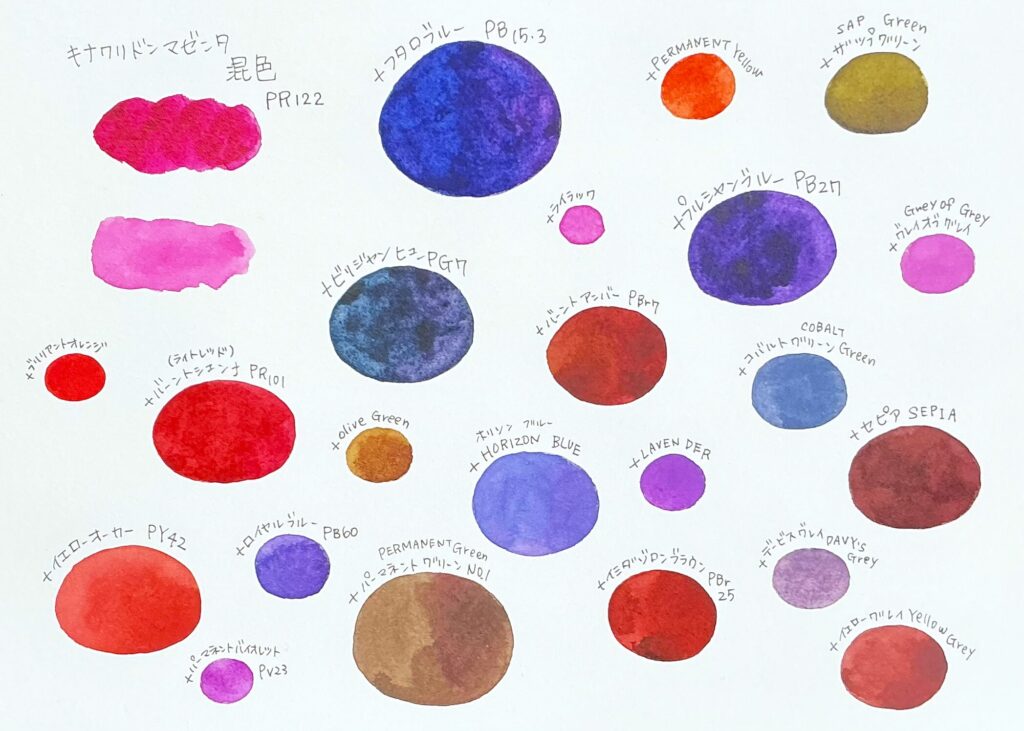 キナクリドンマゼンタ
混色
PR122
+フタロブルー PB15.3
+PERMANENT Yellow
SAP Green
+サップグリーン
+ライラック
+プルシャンブルー PB27
Grey of Grey
+グレイオブグレイ
+ビリジャンヒューPG7
+バーントアンバー PBr7
COBALT
+コバルトグリーン Green
+ブリリアントオレンジ
(ライトレッド)
+バーントシエンナ PR101
+olive Green
ホリゾン ブルー
+HORIZON BLUE
+LAVENDER
+セピア SEPIA
+イエローオーカー PY42
+ロイヤルブルー PB60
PERMANENT Green
+パーマネントグリーン NO.1
+イミダゾロンブラウン PBr
25
+デービスグレイ DAVY'S
Grey
+パーマネントバイオレット
PV23
+イエローグレイ Yellow
Grey